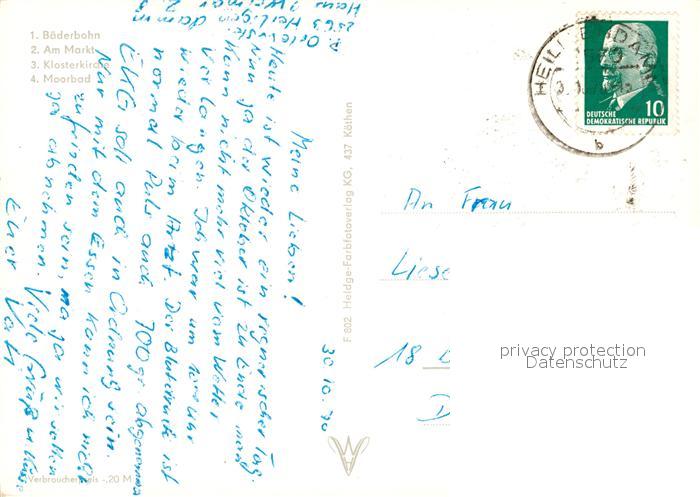 1. Bäderbahn
2. Am Markt
3. Klosterkirche
4. Moorbad
2563 Heiligendamm
30.10.70
Meine Lieben!
Heute ist wieder ein regnerischer Tag.
Nun ja der Oktober ist zu Ende man
kann nicht mehr viel vom Wetter
verlangen. Ich war um
wieder beim Arzt. Der Blutdruck ist
normal Puls auch 700 gr. abgenommen
EKG soll auch in Ordnung sein.
Nur mit dem Essen kann ich nicht
zufrieden sein, na ja wir sollen
ja abnehmen. Viele Grüße u Küsse
Euer Vati
Verbraucherpreis -,20 M
F 802 Heldge-Farbfotoverlag KG, 437 Köthen
HEILIGENDAMM
b
10
DEUTSCHE
DEMOKRATISCHE REPUBLIK
An Frau
Liese
18
D
privacy protection
Datenschutz